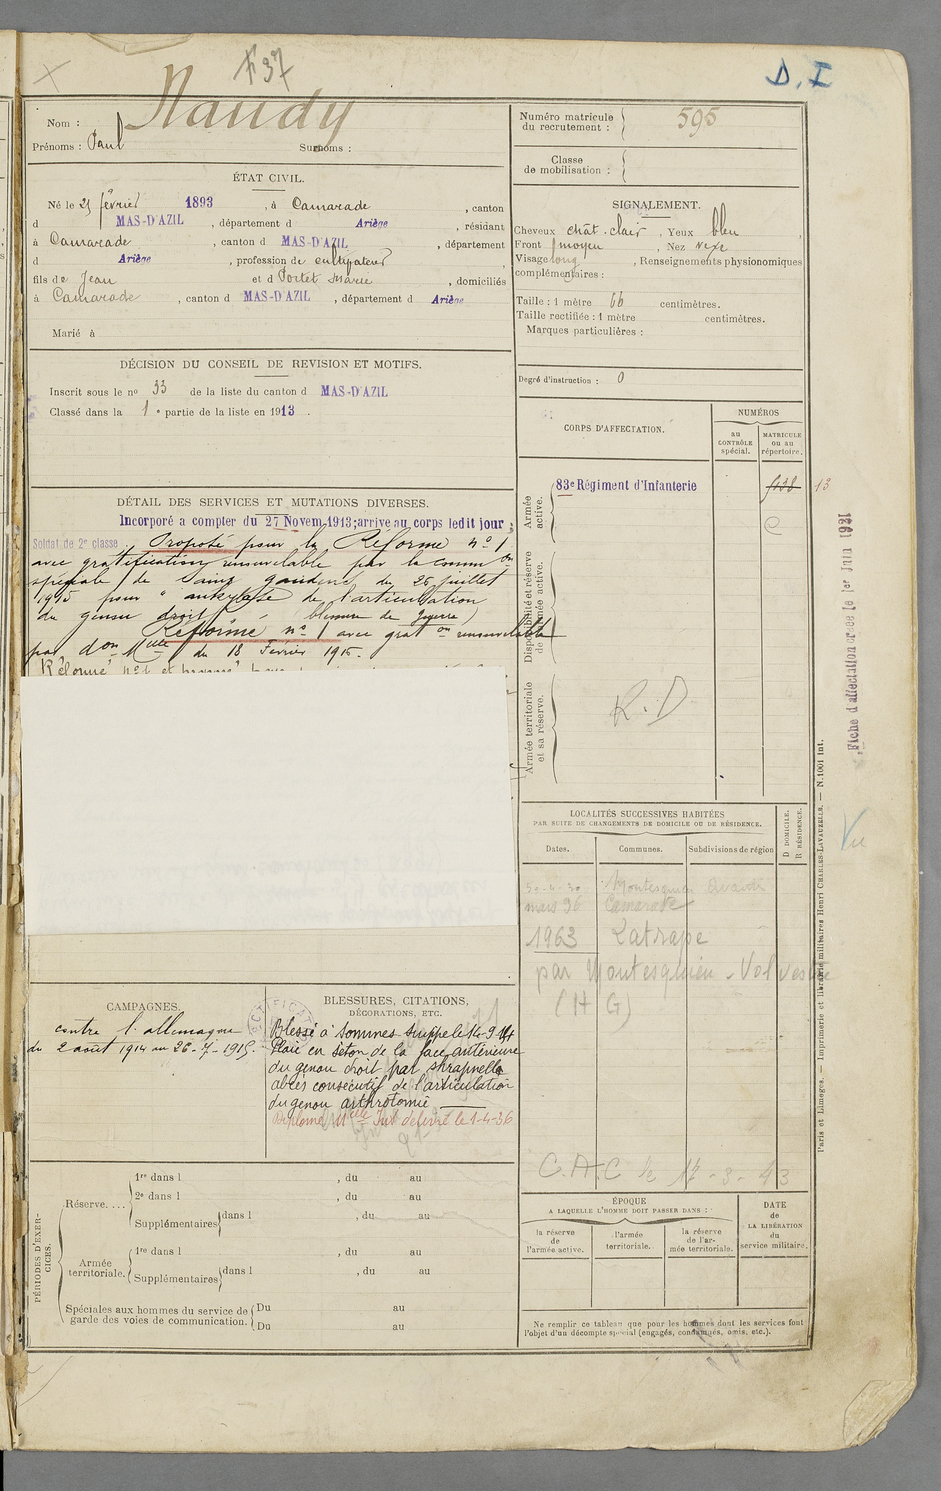 F 37
D. I
Nom : Naudy
Prénoms : Paul Surnoms :
Numéro matricule du recrutement : 595
Classe de mobilisation :
ÉTAT CIVIL.
Né le 25 février 1893, à Camarade, canton
d MAS-D'AZIL, département d Ariège, résidant
à Camarade, canton d MAS-D'AZIL, département
d Ariège, profession de cultivateur
fils de Jean et d Portet Marie, domiciliés
à Camarade, canton d MAS-D'AZIL, département d Ariège
Marié à
SIGNALEMENT.
Cheveux chât. clair, Yeux bleu
Front moyen, Nez vexe
Visage long, Renseignements physionomiques
complémentaires :
Taille : 1 mètre 66 centimètres.
Taille rectifiée : 1 mètre centimètres.
Marques particulières :
Degré d'instruction : 0
DÉCISION DU CONSEIL DE REVISION ET MOTIFS.
Inscrit sous le no 33 de la liste du canton d MAS-D'AZIL
Classé dans la 1e partie de la liste en 1913.
DÉTAIL DES SERVICES ET MUTATIONS DIVERSES.
Incorporé a compter du 27 Novem 1913; arrive au corps ledit jour ;
Soldat de 2e classe. Proposé pour la Réforme no 1
avec gratification renouvelable par la comm on
spéciale de Saint gaudens du 26 juillet
1915 pour " ankylose de l'articulation
du genou droit (blessure de guerre)
Réformé no 1 avec grat on renouvelable
par d on Mlle du 18 Février 1915.
Réformé no 1
CORPS D'AFFECTATION.
NUMÉROS
au CONTRÔLE spécial.
MATRICULE ou au répertoire.
Armée active.
83e Régiment d'Infanterie
13
Disponibilité et réserve de l'armée active.
Armée territoriale et sa réserve.
R. D
Fiche d'affectation créée le 1er Juin 1931
LOCALITÉS SUCCESSIVES HABITÉES
PAR SUITE DE CHANGEMENTS DE DOMICILE OU DE RÉSIDENCE.
D DOMICILE.
R RÉSIDENCE.
Dates. Communes. Subdivisions de région
Montesquieu Avantès
mars 36 Camarade
1963 Latrape
par Montesquieu-Volvestre
(H G)
C.A.C le 17-3-43
Vu
Paris et Limoges. — Imprimerie et librairie militaires Henri CHARLES-LAVAUZELLE. — N. 1001 int.
CAMPAGNES.
contre l'allemagne
du 2 août 1914 au 26-7-1915.
BLESSURES, CITATIONS,
DÉCORATIONS, ETC.
Blessé à Sommes Suippe le 14-9-14
Plaie en séton de la face antérieure
du genou droit par shrapnells
abcès consécutif de l'articulation
du genou arthrotomie
Diplôme délivré le 1-4-36
PÉRIODES D'EXERCICES.
Réserve....
1re dans l , du au
2e dans l , du au
Supplémentaires dans l , du au
Armée territoriale.
1re dans l , du au
Supplémentaires dans l , du au
Spéciales aux hommes du service de garde des voies de communication.
Du au
Du au
ÉPOQUE
A LAQUELLE L'HOMME DOIT PASSER DANS :
la réserve de l'armée active.
l'armée territoriale.
la réserve de l'armée territoriale.
DATE de LA LIBÉRATION du service militaire.
Ne remplir ce tableau que pour les hommes dont les services font
l'objet d'un décompte spécial (engagés, condamnés, omis, etc.).